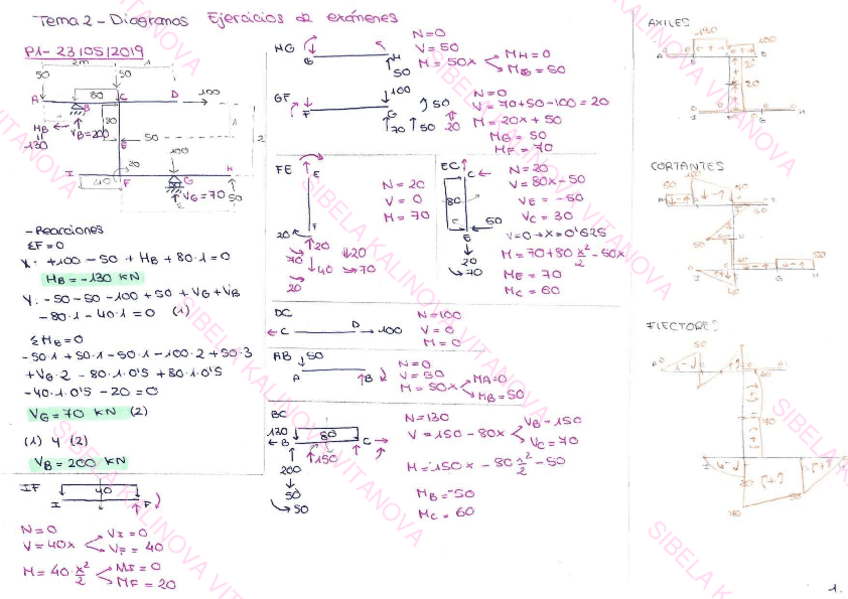 Tema 2 - Diagramas Ejercicios de exámenes
P1 - 23/05/2019
2m 1
50 50
80
A B C D 100
HB
130
VB=200
30
50
E
2
20 100
I F G H
40 VG=70 50
- Reacciones
ΣF=0
X: +100-50+HB+80·1=0
HB=-130 KN
Y: -50-50-100+50+VG+VB
-80·1-40·1=0 (1)
ΣMB=0
-50·1+50·1-50·1-100·2+50·3
+VG·2-80·1·0'5+80·1·0'5
-40·1·0'5-20=0
VG=70 KN (2)
(1) y (2)
VB=200 KN
IF
40
I F
N=0
V=40x VI=0
VF=40
M=40·x²/2 MI=0
MF=20
HG
G H
50
N=0
V=50
M=50x MH=0
MG=50
GF
F G
100
70 50
50
20
N=0
V=70+50-100=20
M=20x+50
MG=50
MF=70
FE
E
F
20
20 20
70 40 70
20
N=20
V=0
M=70
EC
C
80
E 50
20
70
N=20
V=80x-50
VE=-50
VC=30
V=0→x=0'625
M=70+80 x²/2-50x
ME=70
MC=60
DC
C D 100
N=100
V=0
M=0
AB
50
A B
N=0
V=50
M=50x MA=0
MB=50
BC
130 80
B C
150
200
50
50
N=130
V=150-80x VB=150
VC=70
M=150x-80 x²/2-50
MB=-50
MC=60
AXILES
130
100
20
CORTANTES
50
FLECTORES
50
70
1.
SIBELA KALINOVA VITANOVA